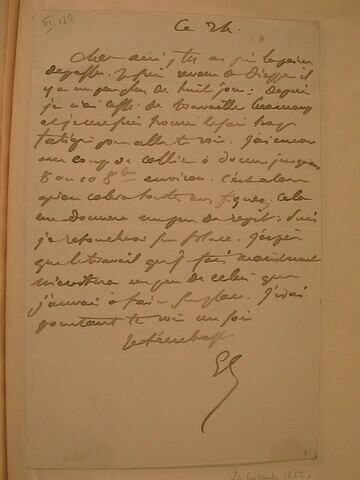 III 125
Ce 24.
cher ami, tu as pris la peine
de passer. Je suis revenu de Dieppe il
y a un peu plus de huit jours : depuis
je n'ai cessé de travailler beaucoup
et je me suis trouvé le soir trop
fatigué pour aller te voir. J'ai encore
un coup de collier à donner jusqu'au
8 ou 10 8bre environ. C'est alors
qu'on collera toutes mes figures. Cela
me donnera un peu de répit : puis
je retoucherai sur place. J'espère
que le travail que je fais maintenant
m'évitera un peu de celui que
j'aurai à faire sur place. J'irai
pourtant te voir un soir
Je t'embrasse
24 septembre 1852.